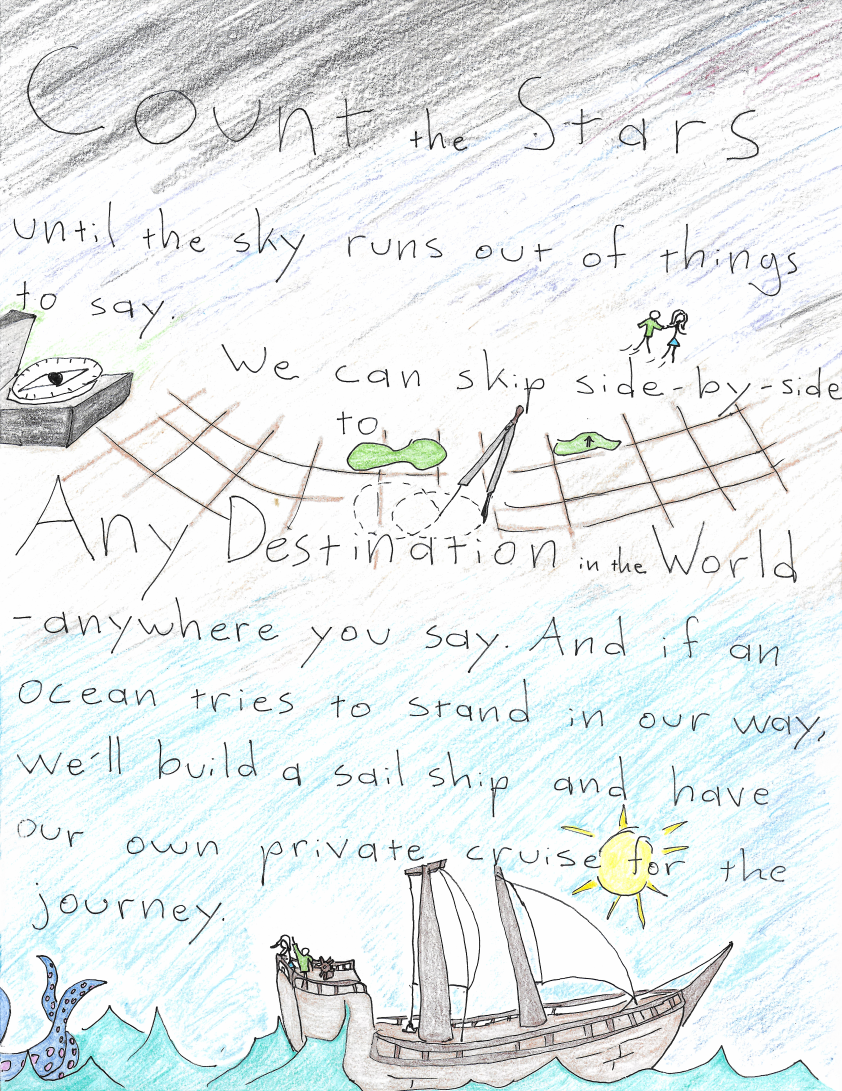 Count the Stars
until the sky runs out of things
to say.
We can skip side-by-side
to
Any Destination in the World
-anywhere you say. And if an
ocean tries to stand in our way,
we'll build a sail ship and have
our own private cruise for the
journey.